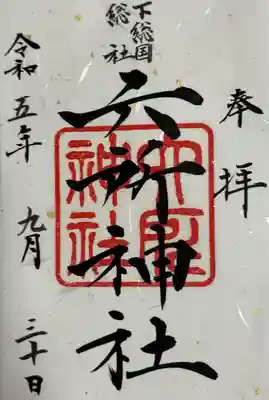 奉拝
下総国
総社
六所神社
六所神社
令和五年
九月
三十日